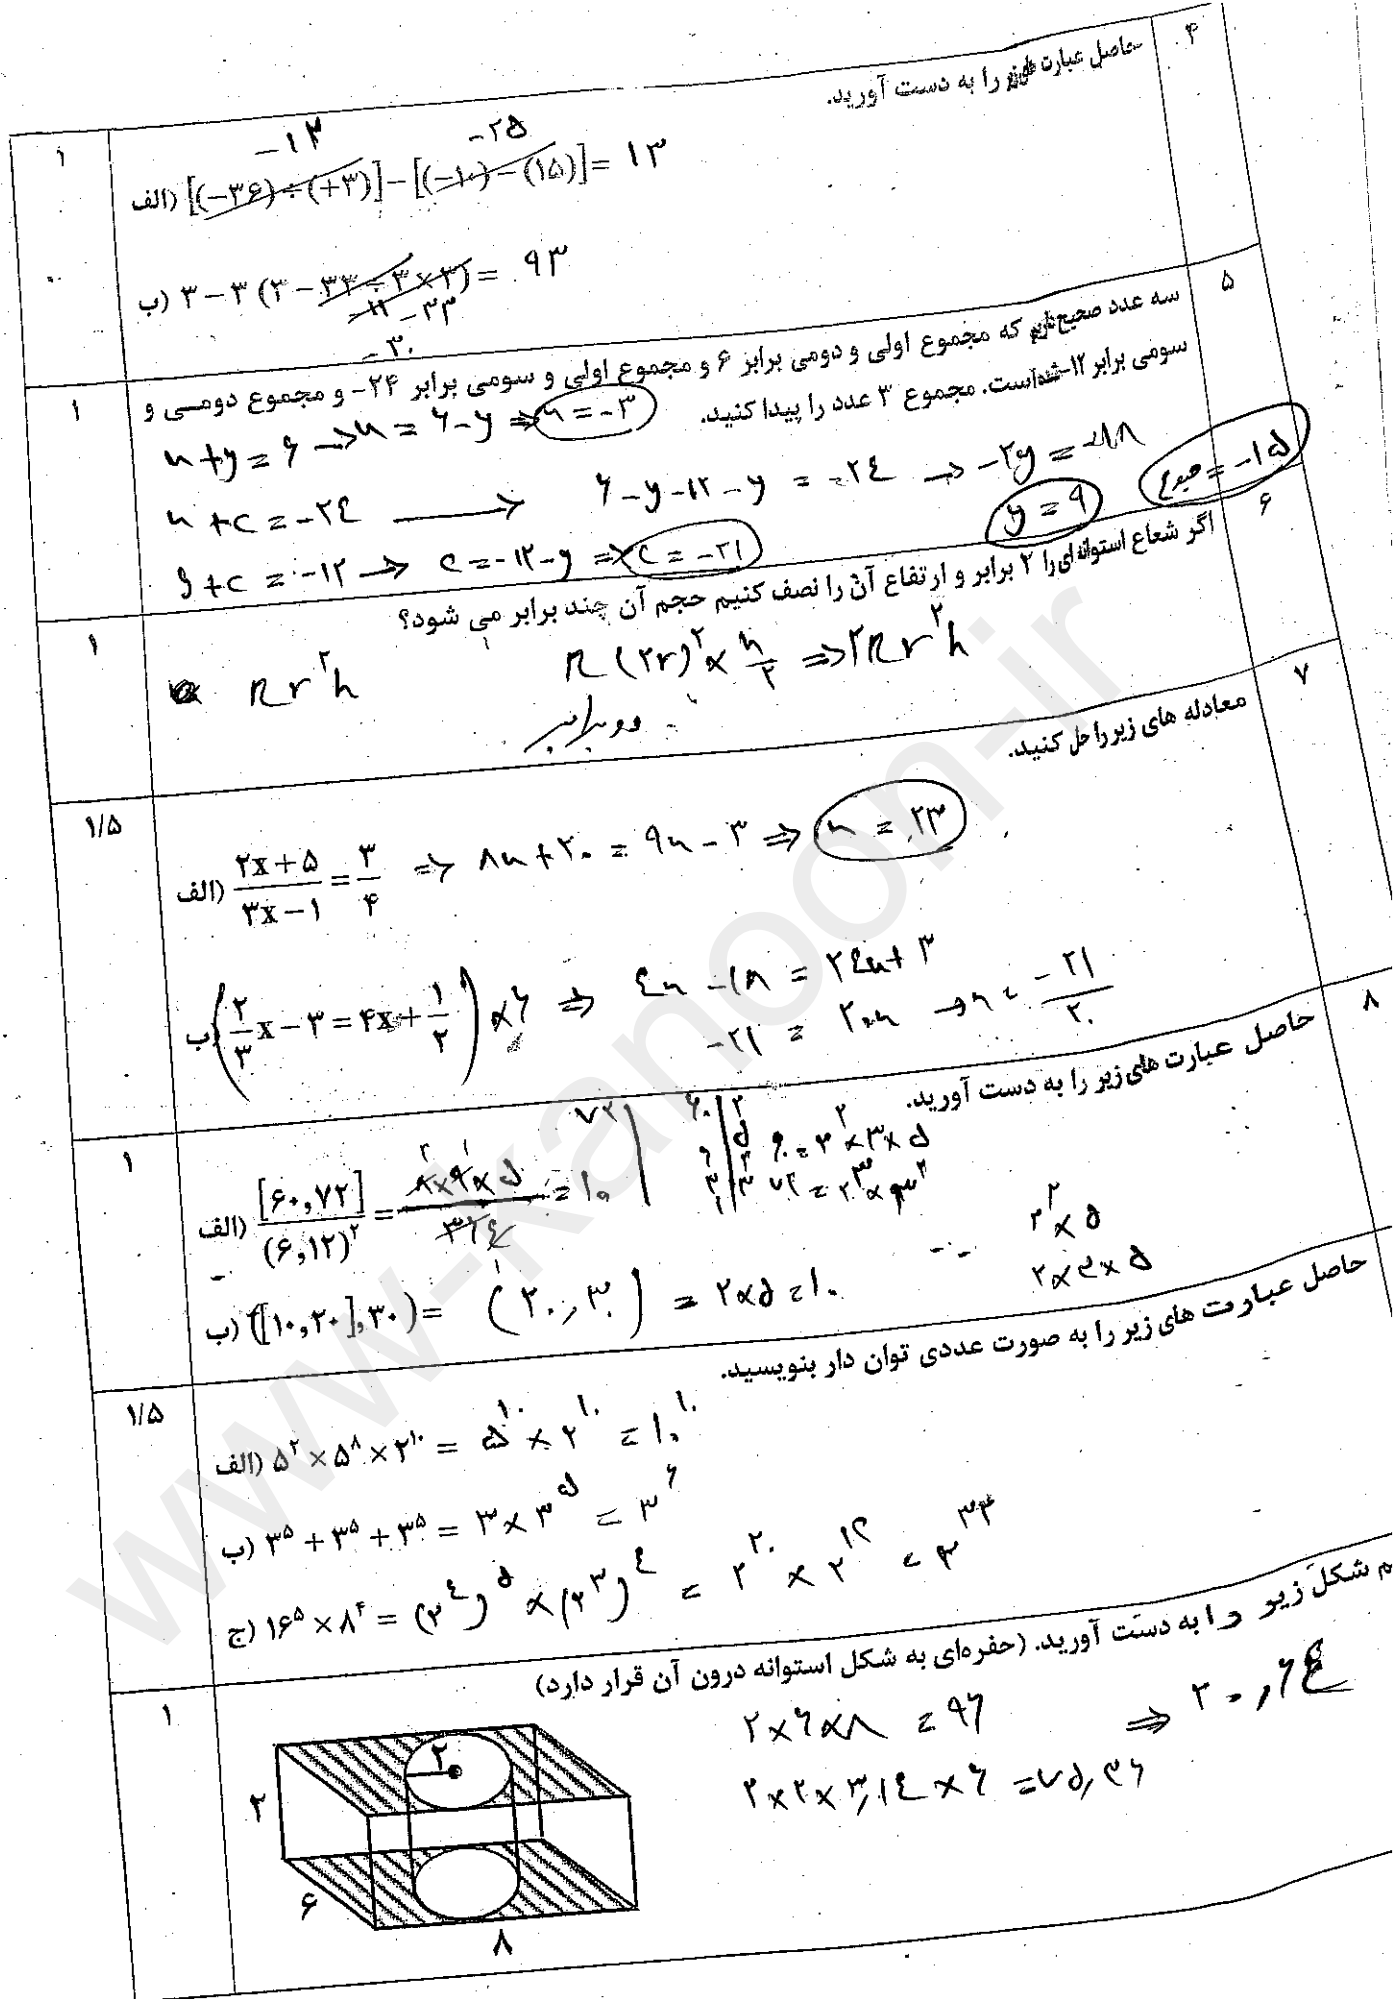 ۴ حاصل عبارت های زیر را به دست آورید.
۱
-۱۲ -۲۵
الف) [(-۳۶)÷(+۳)]-[(-۱۰)-(۱۵)]= ۱۳
ب) ۳-۳(۲-۳۳÷۳×۳)= ۹۳
-۱۱ -۳۳
-۳۰
۵ سه عدد صحیح داریم که مجموع اولی و دومی برابر ۶ و مجموع اولی و سومی برابر ۲۴- و مجموع دومی و
۱
سومی برابر ۱۲- شده است. مجموع ۳ عدد را پیدا کنید.
x+y=۶ → x=۶-y ⇒ x=-۳
x+c=-۲۴ → ۶-y-۱۲-y = -۲۴ → -۲y=-۱۸
y=۹ مجموع=-۱۵
y+c=-۱۲ → c=-۱۲-y ⇒ c=-۲۱
۶ اگر شعاع استوانه ای را ۲ برابر و ارتفاع آن را نصف کنیم حجم آن چند برابر می شود؟
۱
πr²h π(۲r)²×h/۲ ⇒ ۲πr²h
دو برابر
۷ معادله های زیر را حل کنید.
۱/۵
الف) (۲x+۵)/(۳x-۱)=۳/۴ ⇒ ۸x+۲۰=۹x-۳ ⇒ x=۲۳
ب) (۲/۳x-۳=۴x+۱/۲)×۶ ⇒ ۴x-۱۸=۲۴x+۳
-۲۱=۲۰x → x=-۲۱/۲۰
۸ حاصل عبارت های زیر را به دست آورید.
۱
الف) [۶۰,۷۲]/(۶,۱۲)²= ۸×۹×۵/۳۶=۱۰
۶۰=۲²×۳×۵
۷۲=۲³×۳²
ب) ([۱۰,۲۰],۳۰)= (۲۰,۳۰) = ۲×۵=۱۰
۲²×۵
۲×۳×۵
حاصل عبارت های زیر را به صورت عددی توان دار بنویسید.
۱/۵
الف) ۵²×۵⁸×۲¹⁰= ۵¹⁰×۲¹⁰=۱۰¹⁰
ب) ۳⁵+۳⁵+۳⁵= ۳×۳⁵=۳⁶
ج) ۱۶⁵×۸⁴= (۲⁴)⁵×(۲³)⁴ = ۲²⁰×۲¹² = ۲³²
م شکل زیر را به دست آورید. (حفره‌ای به شکل استوانه درون آن قرار دارد)
۱
۲×۶×۸=۹۶ ⇒ ۲۰,۶۴
۲×۲×۳,۱۴×۶=۷۵,۳۶
۲
۲
۶
۸
www-kanoon-ir